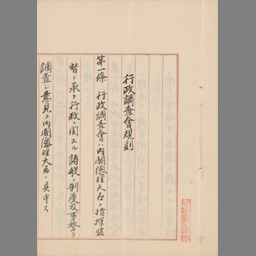 行政調査會規則
第一條 行政調査會ハ内閣總理大臣ノ指揮監
督ヲ承ケ行政ニ関スル諸般ノ制度及事務ヲ
調査シ意見ヲ内閣總理大臣ニ具申ス